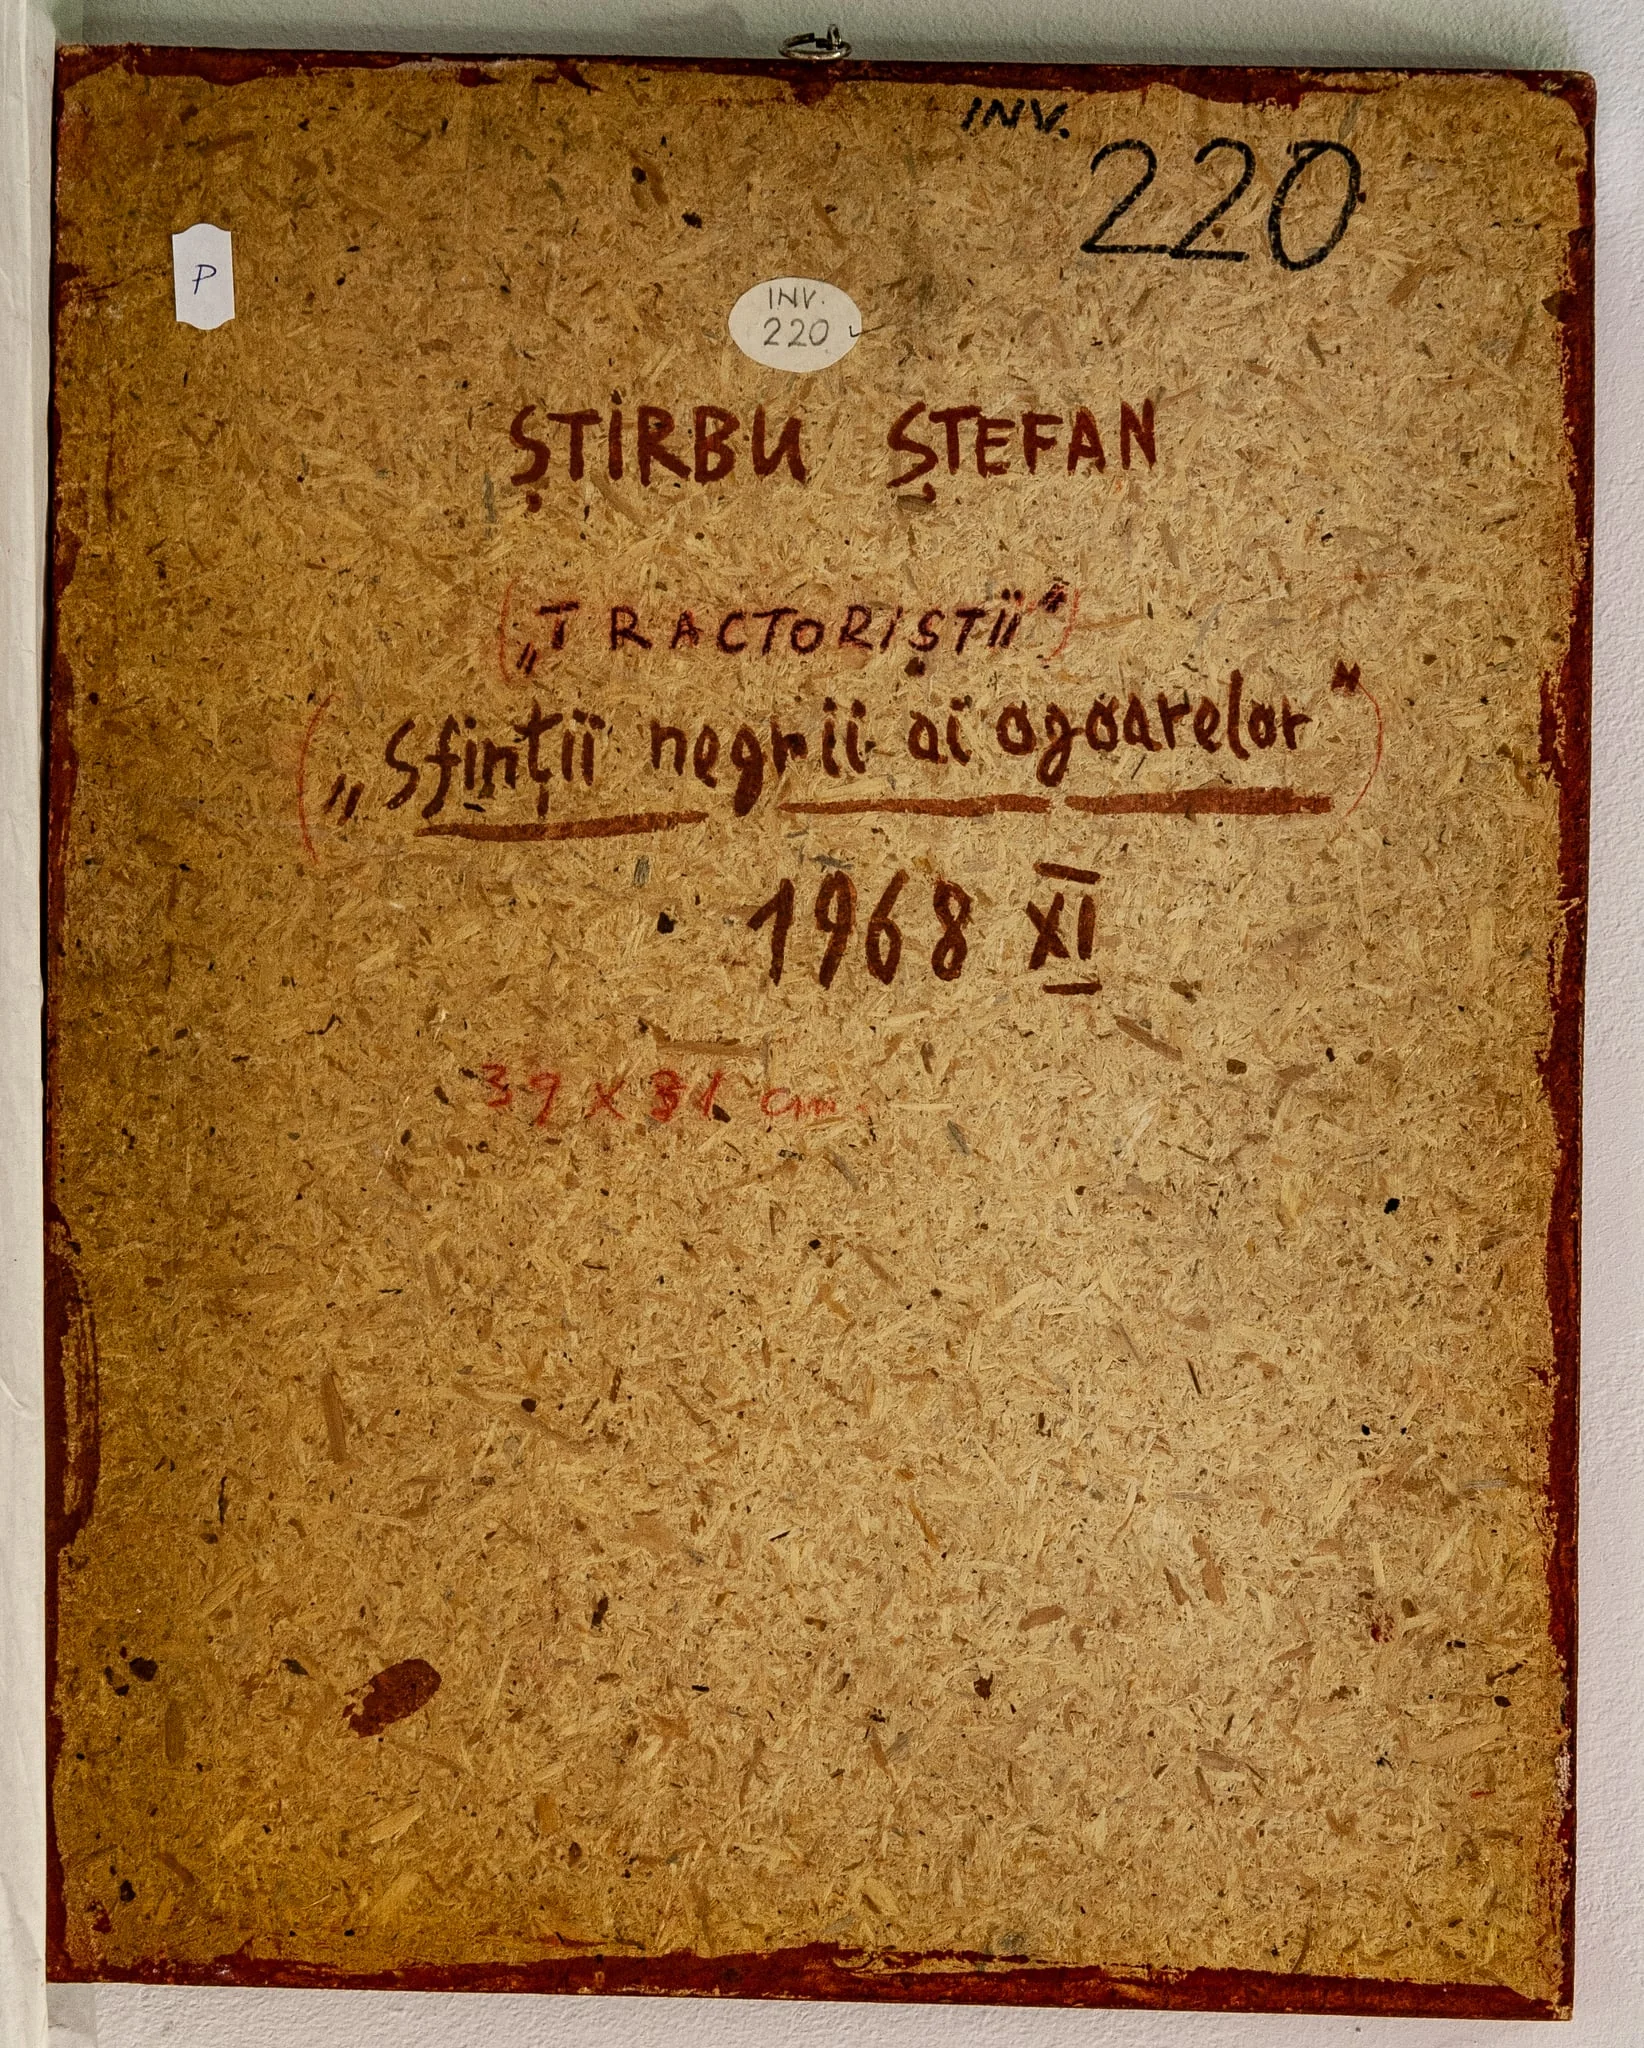 INV.
220
P
INV.
220
ȘTIRBU ȘTEFAN
(„TRACTORIȘTII")
(„Sfinții negrii ai ogoarelor")
1968 XI
39 x 31 cm.